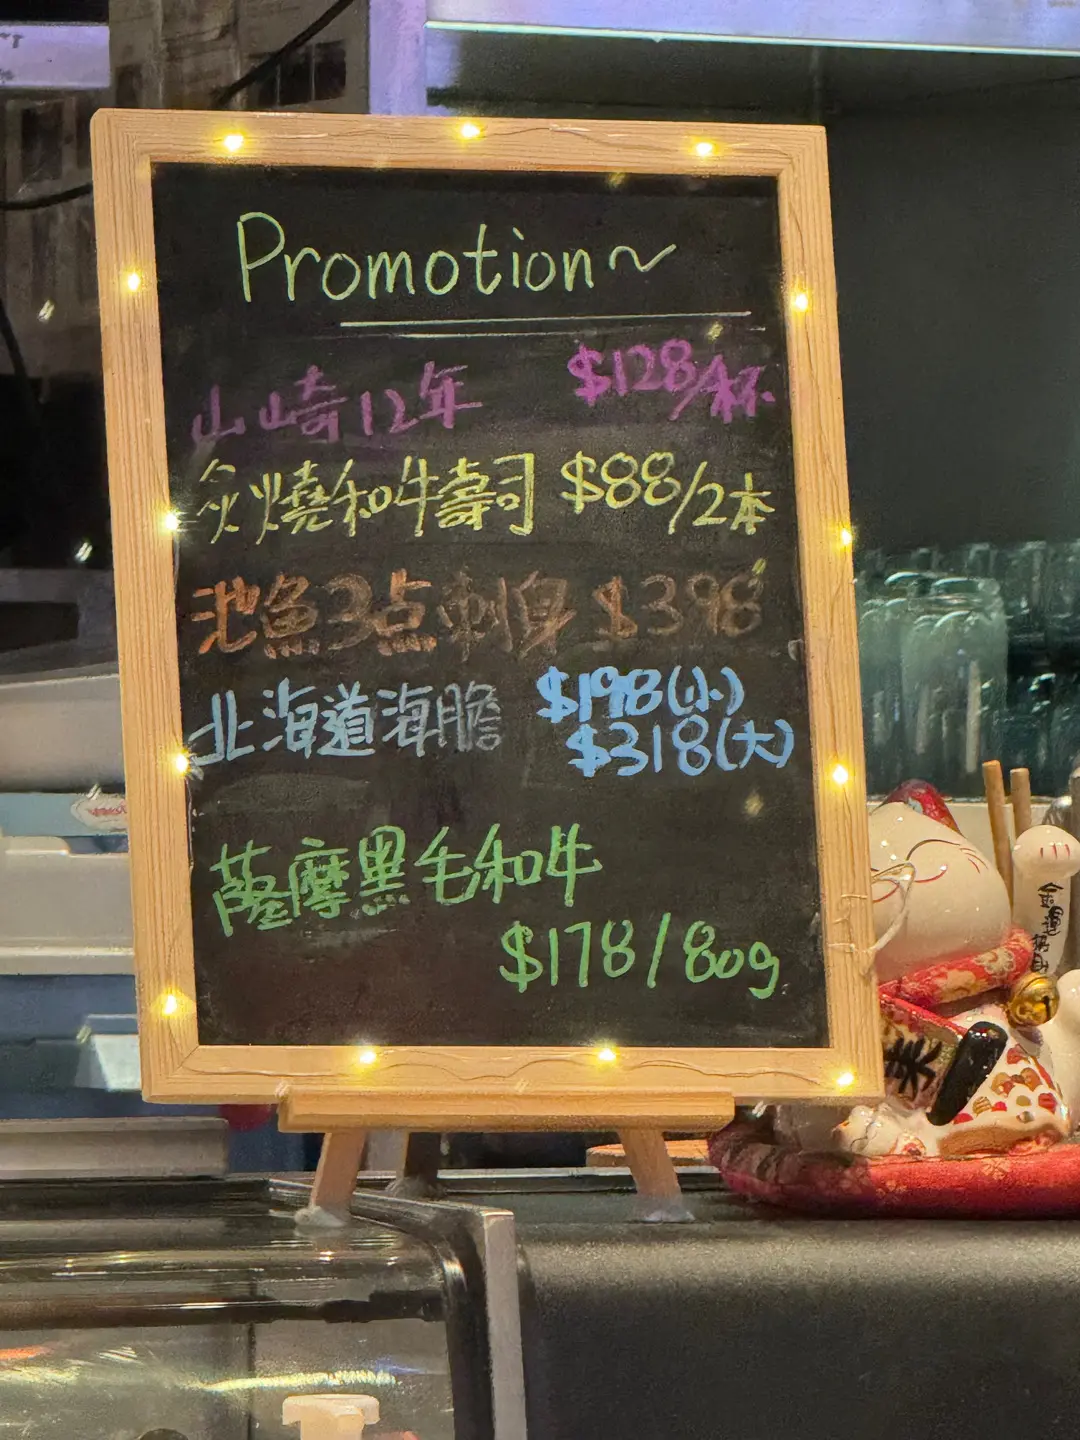 Promotion~
山崎12年 $128/杯
炙燒和牛壽司 $88/2本
池魚3点刺身 $398
北海道海膽 $198(小)
$318(大)
薩摩黒毛和牛
$178/80g
金運